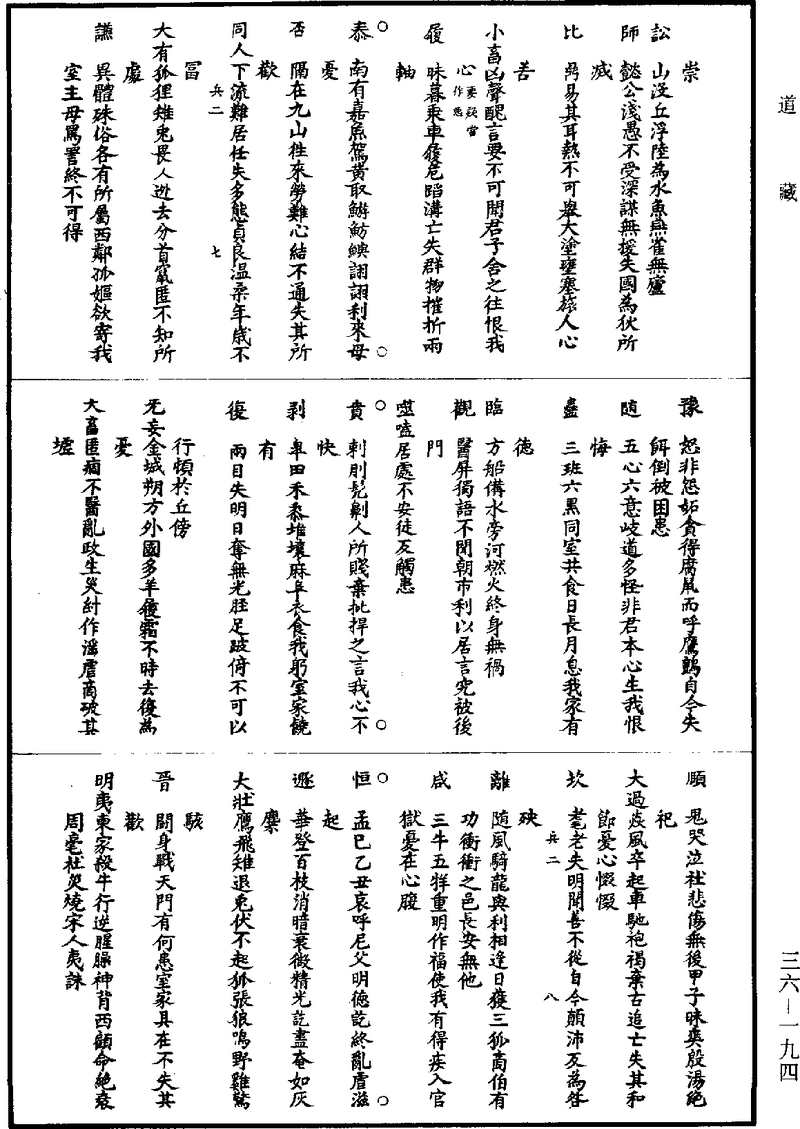 道藏
崇
訟　山没丘浮陸為水魚燕雀無廬
師　懿公淺愚不受深謀無援失國為狄所
滅
比　鼎易其耳熱不可舉大塗壅塞旅人心
苦
小畜凶聲醜言惡不可聞君子舍之往恨我
心
履　昧暮乘車履危蹈溝亡失群物摧折兩
軸
泰　南有嘉魚駕黄取鰌魴鱮詡詡利來毋
憂
否　隔在九山往來勞難心結不通失其所
歡
同人下流難居任失多態貞良温柔年歲不
兵二　七
富
大有狐狸雉兎畏人逃去分首竄匿不知所
處
謙　異體殊俗各有所屬西鄰孤嫗欲寄我
室主母罵詈終不可得
豫　怨非怨妬貪得腐鼠而呼鷹鷂自令失
餌倒被困患
随　五心六意岐道多怪非君本心生我恨
悔
蠱　三班六黑同室共食日長月息我家有
德
臨　方船備水旁河燃火終身無禍
觀　醫屏獨語不聞朝市利以居言究被後
門
噬嗑居處不安徒反觸患
賁　刺刖髡劓人所賤棄批捍之言我心不
快
剥　阜田禾黍堆壤麻阜衣食我躬室家饒
有
復　兩目失明日奪無光胫足跛俯不可以
行頓於丘傍
无妄金城朔方外國多羊履霜不時去復為
憂
大畜匿病不醫亂政生災紂作滛虐商破其
墟
頤　鬼哭泣社悲傷無後甲子昧爽殷湯絶
祀
大過焱風卒起車馳袍褐棄古追亡失其和
節憂心惙惙
坎　耄老失明聞善不從自令顛沛反為咎
兵二　八
殃
離　随風騎龍與利相逢日獲三狐商伯有
功衝衝之邑長安無他
咸　三牛五牂重明作福使我有得疾入官
獄憂在心腹
恒　孟巳乙丑哀呼尼父明德訖終亂虐滋
起
遯　華登百枝消暗衰微精光訖盡奄如灰
糜
大壯鷹飛雉退兎伏不起狐張狼鳴野雞驚
駭
晉　鬭身戰天門有何患室家具在不失其
歡
明夷東家殺牛行逆腥臊神背西顧命絶衰
周亳社災燒宋人夷誅
三六－一九四